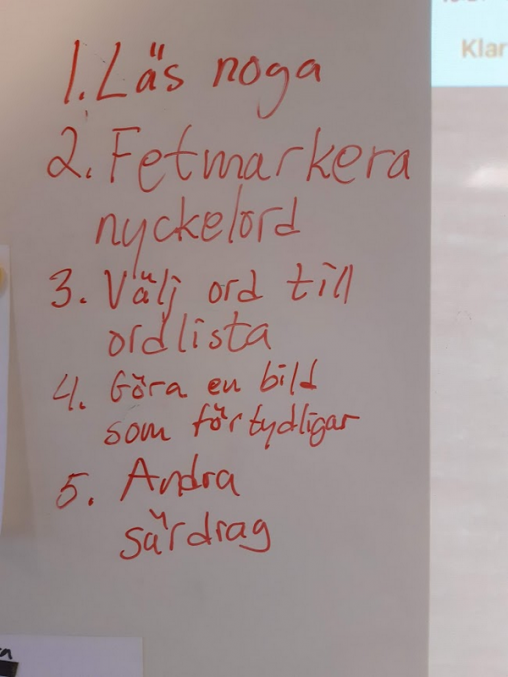 1. Läs noga
2. Fetmarkera
nyckelord
3. Välj ord till
ordlista
4. Göra en bild
som förtydligar
5. Andra
särdrag
Klar